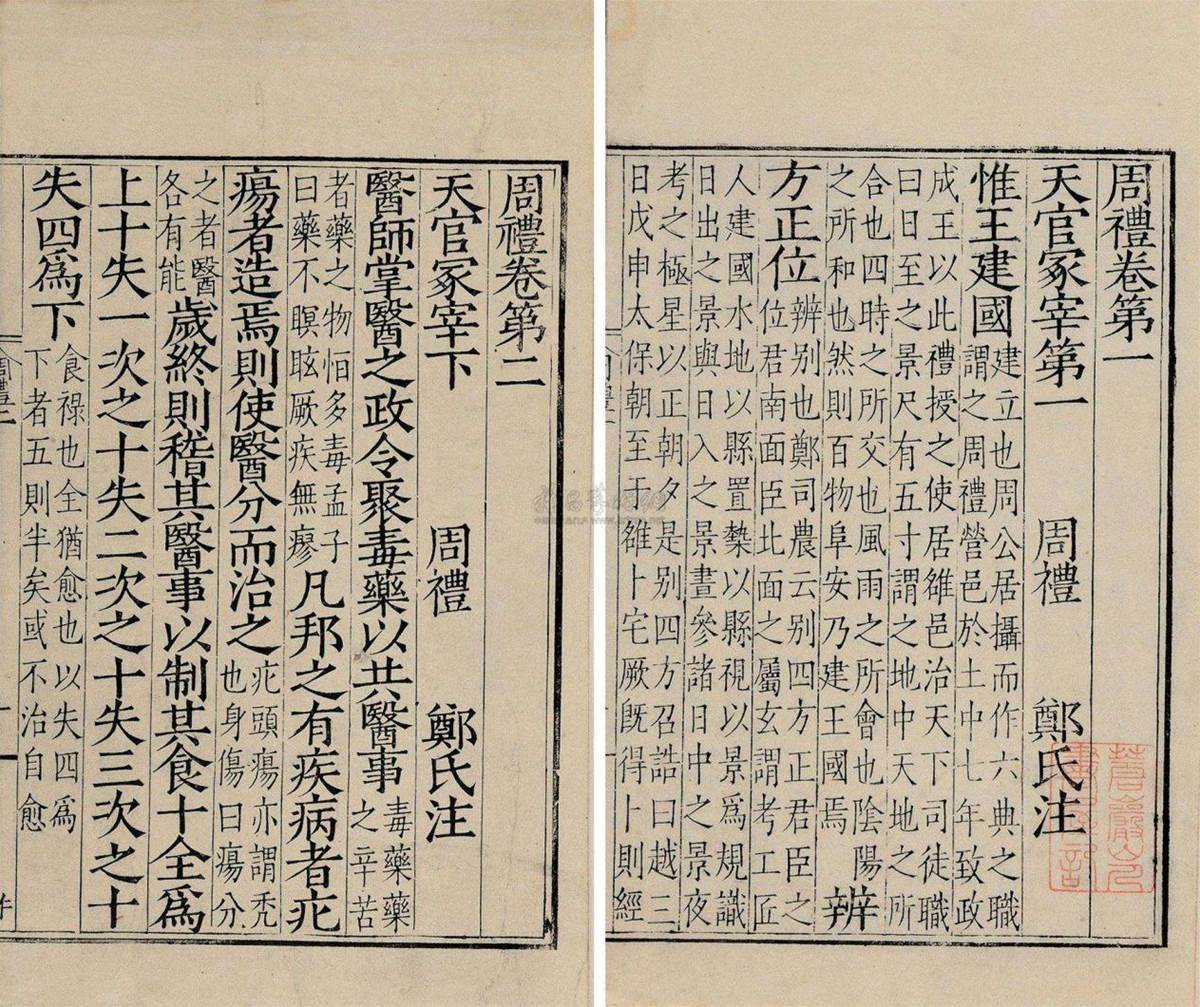 周禮卷第一
天官冢宰第一 周禮 鄭氏注
惟王建國 建立也周公居攝而作六典之職
謂之周禮營邑於土中七年致政
成王以此禮授之使居雒邑治天下司徒職
曰日至之景尺有五寸謂之地中天地之所
合也四時之所交也風雨之所會也陰陽
之所和也然則百物阜安乃建王國焉 辨
方正位 辨别也鄭司農云别四方正君臣之
位君南面臣北面之屬玄謂考工匠
人建國水地以縣置槷以縣視以景爲規識
日出之景與日入之景晝參諸日中之景夜
考之極星以正朝夕是别四方召誥曰越三
日戊申太保朝至于雒卜宅厥既得卜則經
周禮卷第二
天官冢宰下 周禮 鄭氏注
醫師掌醫之政令聚毒藥以共醫事 毒藥藥
之辛苦
者藥之物恒多毒孟子
曰藥不瞑眩厥疾無瘳 凡邦之有疾病者疕
瘍者造焉則使醫分而治之 疕頭瘍亦謂秃
也身傷曰瘍分
之者醫
各有能 歲終則稽其醫事以制其食十全爲
上十失一次之十失二次之十失三次之十
失四爲下 食禄也全猶愈也以失四爲
下者五則半矣或不治自愈